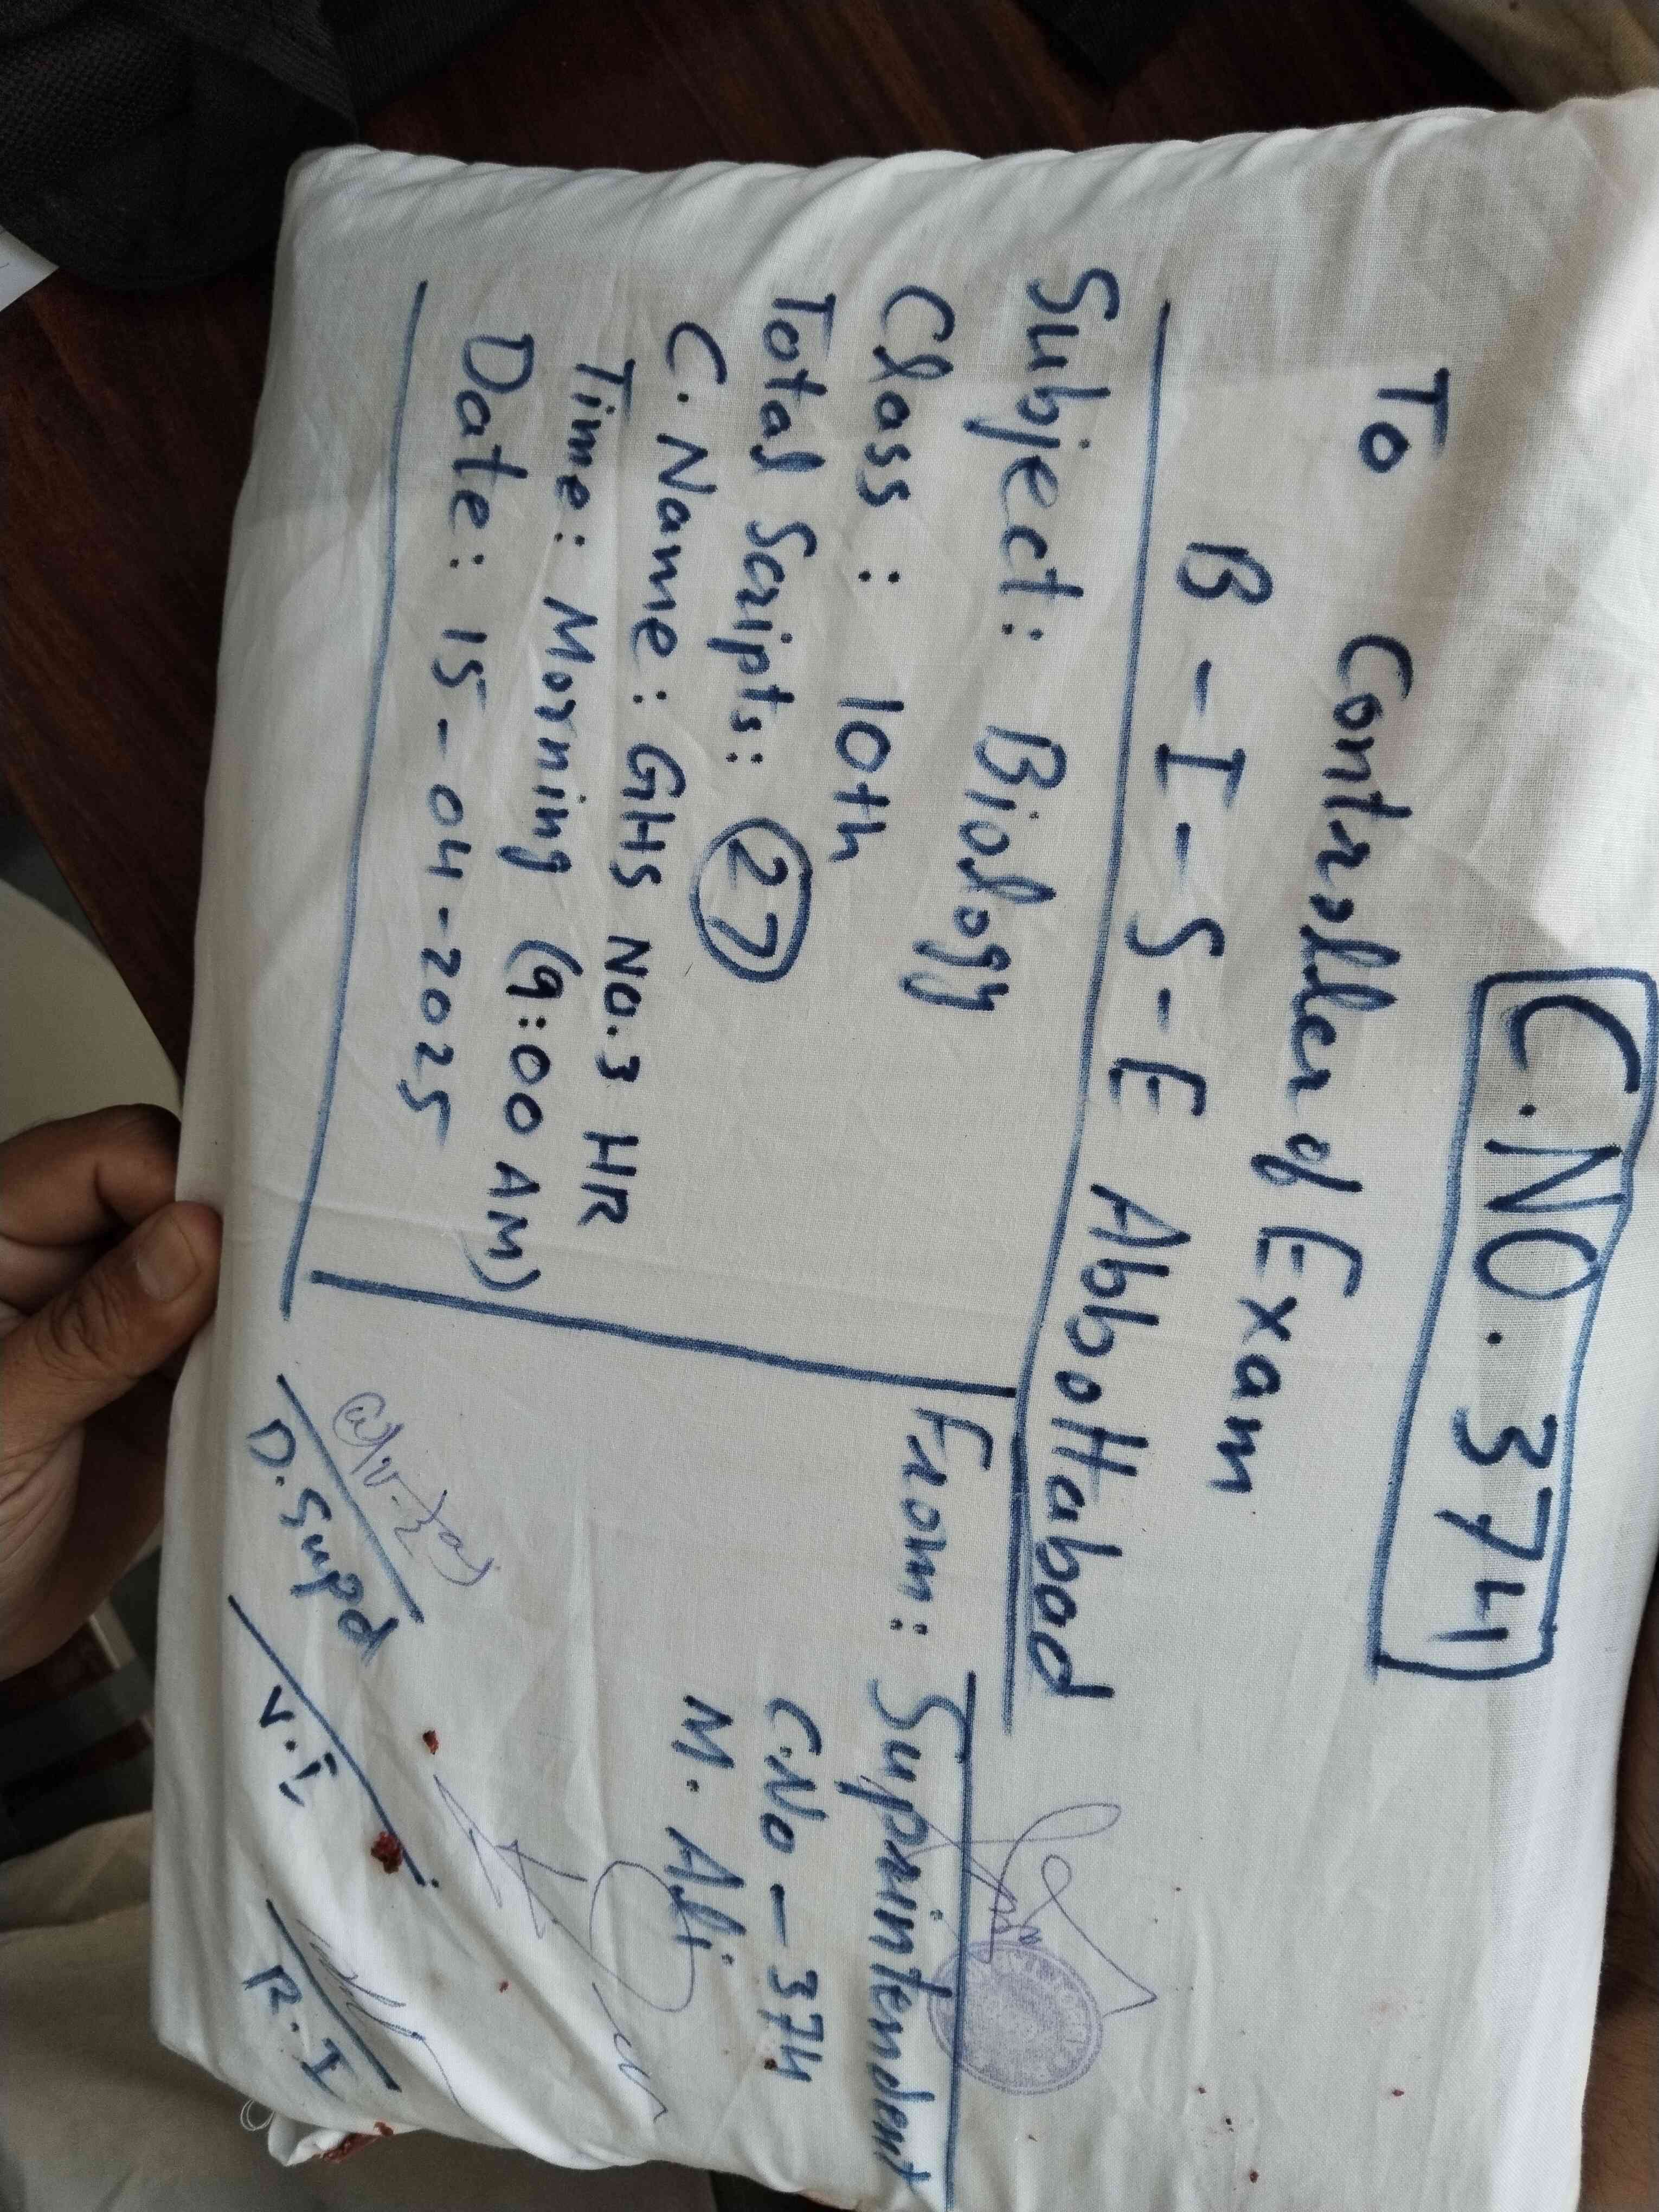 C.NO. 374
To Controller of Exam
B-I-S-E Abbottabad
Subject: Biology
Class : 10th
Total Scripts: 27
C.Name: GHS No.3 HR
Time: Morning (9:00 AM)
Date: 15-04-2025
From: Superintendent
C.No - 374
M. Ali
D.Supd
V.I
R.I